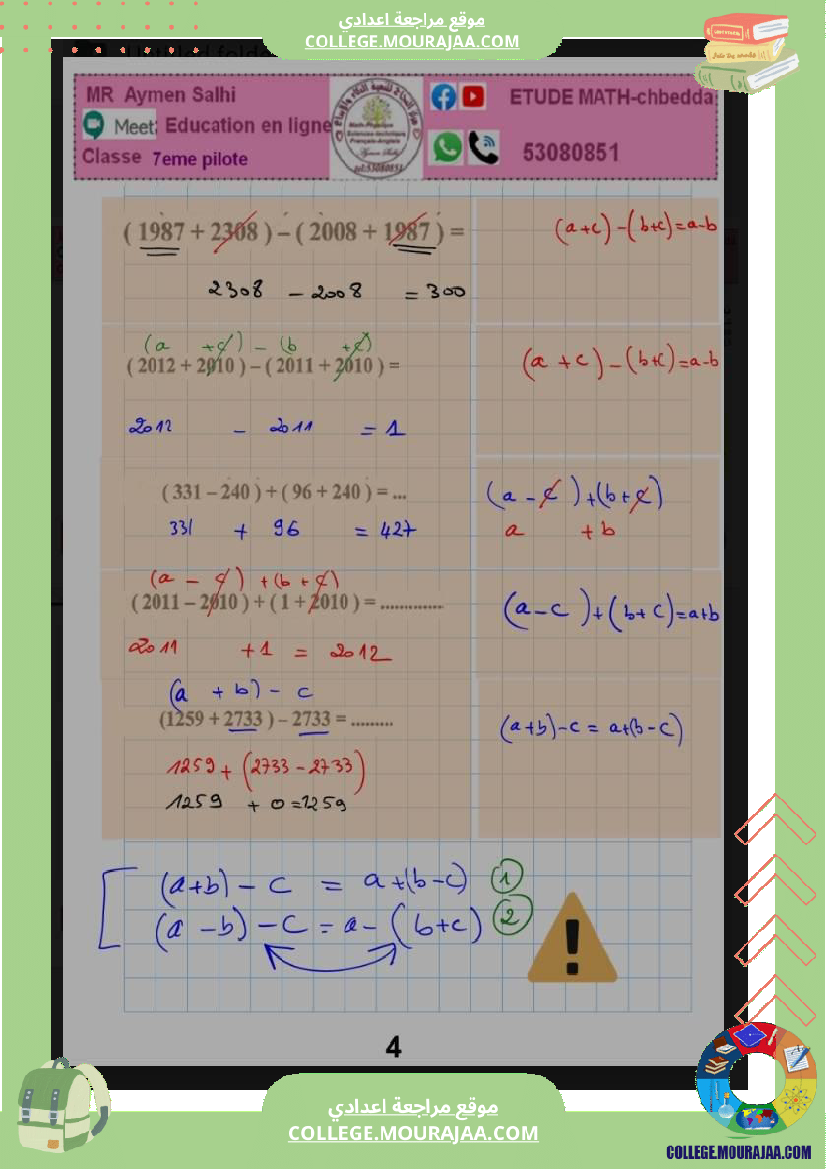 موقع مراجعة اعدادي
COLLEGE.MOURAJAA.COM
MR Aymen Salhi
Meet: Education en ligne
Classe 7eme pilote
ETUDE MATH-chbedda
53080851
( 1987 + 2308 ) – ( 2008 + 1987 ) =
(a+c) – (b+c) = a-b
2308 – 2008 = 300
(a + c) – (b + c)
( 2012 + 2010 ) – ( 2011 + 2010 ) =
(a + c) – (b+c) = a-b
2012 – 2011 = 1
( 331 – 240 ) + ( 96 + 240 ) = ...
(a – c) + (b + c)
331 + 96 = 427
a + b
(a – c) + (b + c)
( 2011 – 2010 ) + ( 1 + 2010 ) = ..............
(a – c) + (b + c) = a+b
2011 + 1 = 2012
(a + b) – c
(1259 + 2733 ) – 2733 = .........
(a+b) – c = a+(b – c)
1259 + (2733 – 2733)
1259 + 0 = 1259
(a+b) – c = a+(b-c) 1
(a – b) – c = a – (b+c) 2
4
موقع مراجعة اعدادي
COLLEGE.MOURAJAA.COM
COLLEGE.MOURAJAA.COM